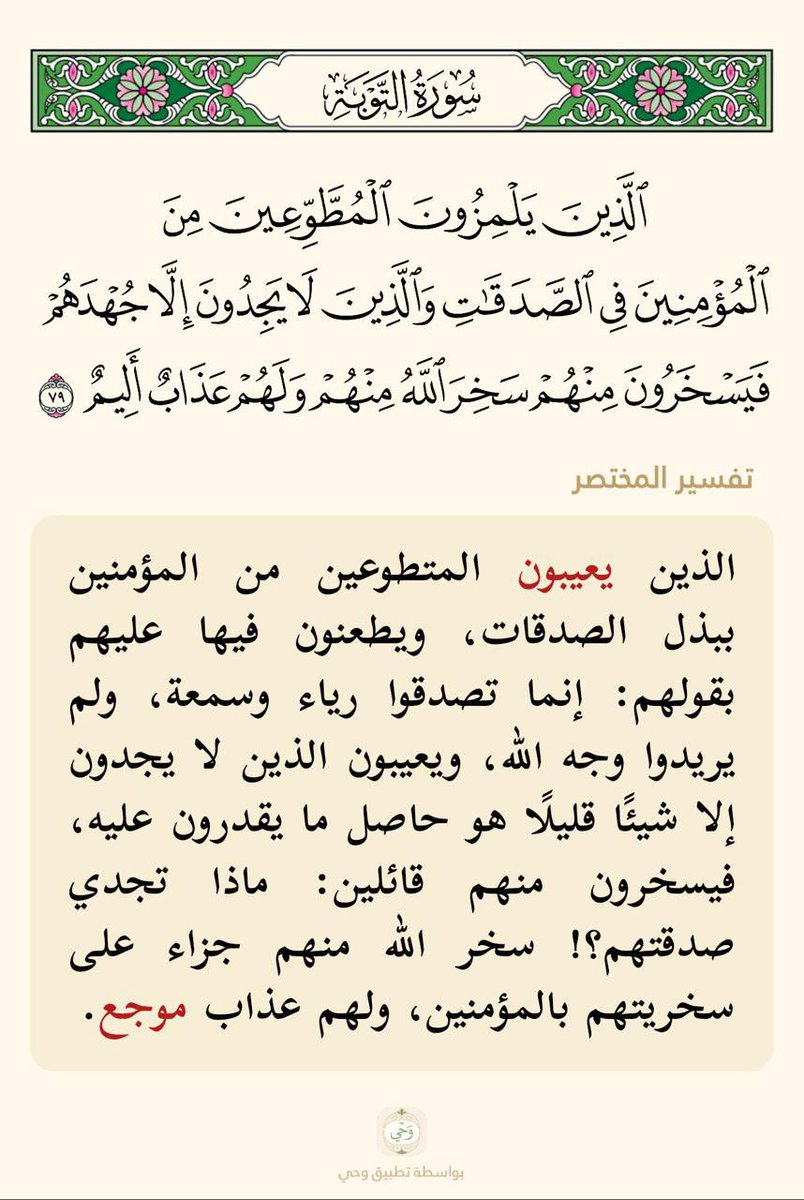 سُورَةُ التَّوۡبَةِ
ٱلَّذِينَ يَلۡمِزُونَ ٱلۡمُطَّوِّعِينَ مِنَ
ٱلۡمُؤۡمِنِينَ فِي ٱلصَّدَقَٰتِ وَٱلَّذِينَ لَا يَجِدُونَ إِلَّا جُهۡدَهُمۡ
فَيَسۡخَرُونَ مِنۡهُمۡ سَخِرَ ٱللَّهُ مِنۡهُمۡ وَلَهُمۡ عَذَابٌ أَلِيمٌ ٧٩
تفسير المختصر
الذين يعيبون المتطوعين من المؤمنين
ببذل الصدقات، ويطعنون فيها عليهم
بقولهم: إنما تصدقوا رياء وسمعة، ولم
يريدوا وجه الله، ويعيبون الذين لا يجدون
إلا شيئًا قليلًا هو حاصل ما يقدرون عليه،
فيسخرون منهم قائلين: ماذا تجدي
صدقتهم؟! سخر الله منهم جزاء على
سخريتهم بالمؤمنين، ولهم عذاب موجع.
وَحْي
بواسطة تطبيق وحي